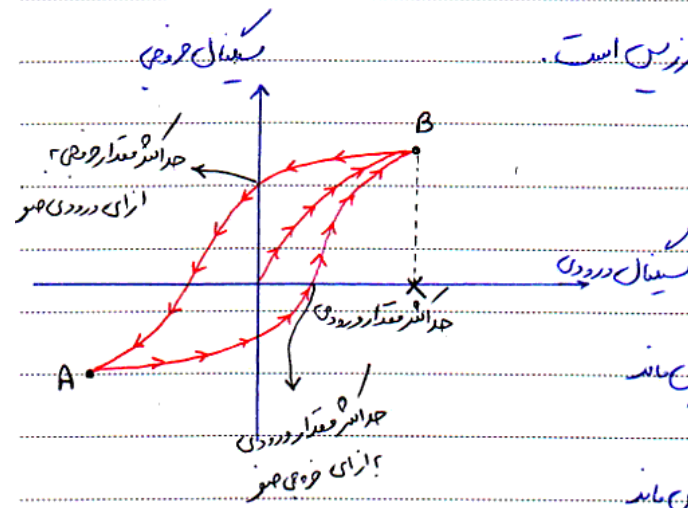 سیگنال خروجی
است.
حداکثر مقدار خروجی به
ازای ورودی صفر
B
سیگنال ورودی
حداکثر مقدار ورودی
A
حداکثر مقدار ورودی
به ازای خروجی صفر
ماند
ماند